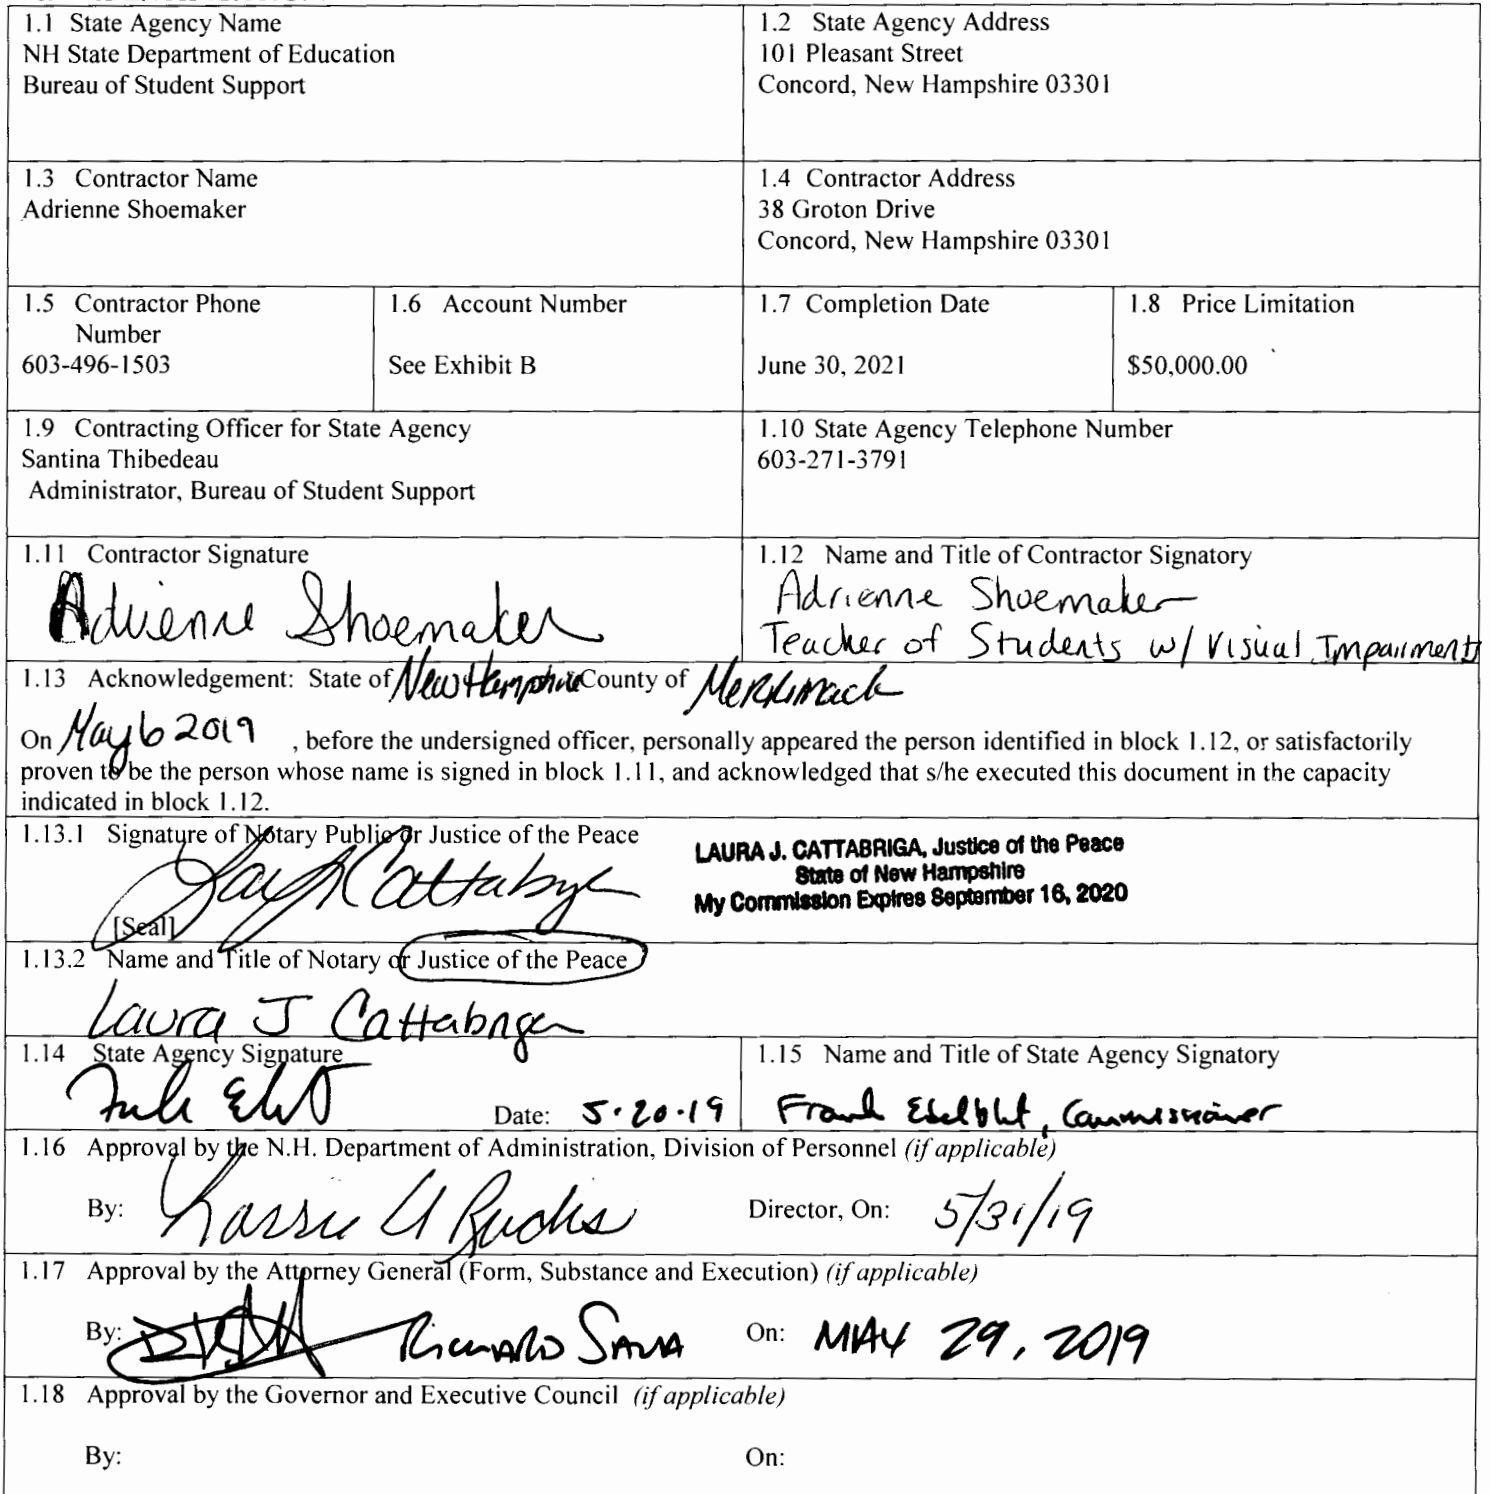 1.1 State Agency Name
NH State Department of Education
Bureau of Student Support
1.2 State Agency Address
101 Pleasant Street
Concord, New Hampshire 03301
1.3 Contractor Name
Adrienne Shoemaker
1.4 Contractor Address
38 Groton Drive
Concord, New Hampshire 03301
1.5 Contractor Phone
Number
603-496-1503
1.6 Account Number
See Exhibit B
1.7 Completion Date
June 30, 2021
1.8 Price Limitation
$50,000.00
1.9 Contracting Officer for State Agency
Santina Thibedeau
Administrator, Bureau of Student Support
1.10 State Agency Telephone Number
603-271-3791
1.11 Contractor Signature
Adrienne Shoemaker
1.12 Name and Title of Contractor Signatory
Adrienne Shoemaker
Teacher of Students w/ Visual Impairments
1.13 Acknowledgement: State of New Hampshire County of Merrimack
On May 6 2019, before the undersigned officer, personally appeared the person identified in block 1.12, or satisfactorily
proven to be the person whose name is signed in block 1.11, and acknowledged that s/he executed this document in the capacity
indicated in block 1.12.
1.13.1 Signature of Notary Public or Justice of the Peace
Cattabriga
[Seal]
LAURA J. CATTABRIGA, Justice of the Peace
State of New Hampshire
My Commission Expires September 16, 2020
1.13.2 Name and Title of Notary or Justice of the Peace
Laura J Cattabriga
1.14 State Agency Signature
Date: 5.20.19
1.15 Name and Title of State Agency Signatory
Frank Edelblut, Commissioner
1.16 Approval by the N.H. Department of Administration, Division of Personnel (if applicable)
By:
Director, On: 5/31/19
1.17 Approval by the Attorney General (Form, Substance and Execution) (if applicable)
By: Richard Sala
On: MAY 29, 2019
1.18 Approval by the Governor and Executive Council (if applicable)
By:
On: